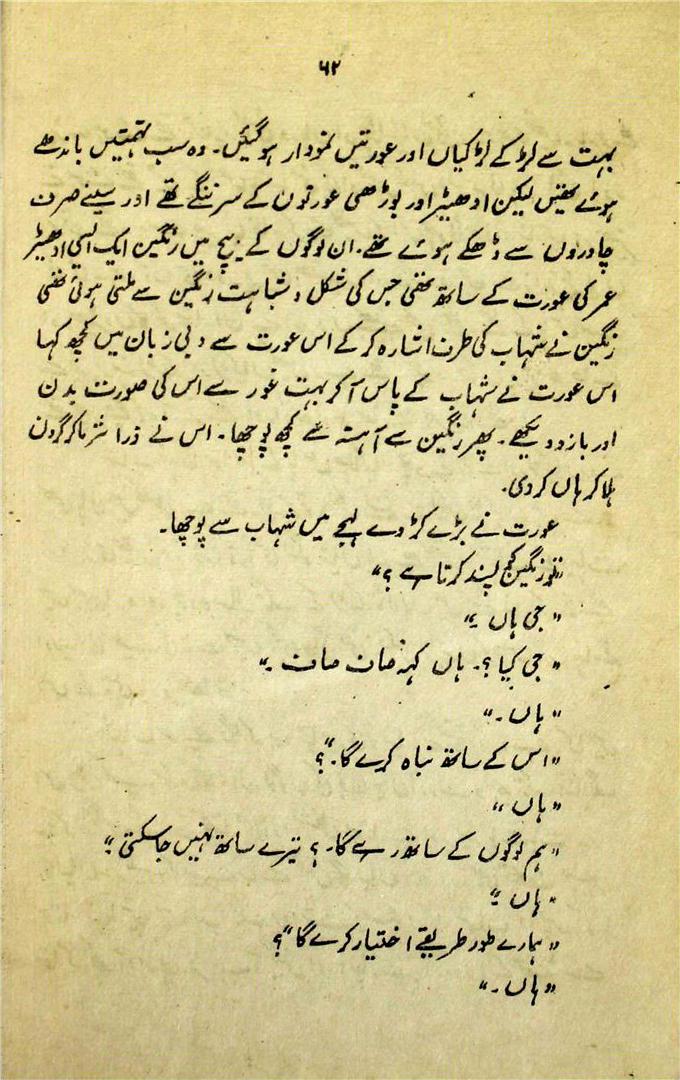 ۶۲
بہت سے لڑکے لڑکیاں اور عورتیں نمودار ہوگئیں۔ وہ سب تہمتیں باندھے
ہوئے تھیں لیکن ادھیڑ اور بوڑھی عورتوں کے سر ننگے تھے اور سینے صرف
چادروں سے ڈھکے ہوئے تھے۔ ان لوگوں کے بیچ میں رنگین ایک ایسی ادھیڑ
عمر کی عورت کے ساتھ تھی جس کی شکل و شباہت رنگین سے ملتی ہوئی تھی
رنگین نے شہاب کی طرف اشارہ کر کے اس عورت سے دبی زبان میں کچھ کہا
اس عورت نے شہاب کے پاس آکر بہت غور سے اس کی صورت بدن
اور بازو دیکھے۔ پھر رنگین سے آہستہ سے کچھ پوچھا۔ اس نے ذرا شرما کر گردن
ہلا کر ہاں کردی۔
عورت نے بڑے کڑوے لہجے میں شہاب سے پوچھا۔
"تو رنگین کو پسند کرتا ہے؟"
"جی ہاں۔"
"جی کیا؟۔ ہاں کہہ صاف صاف۔"
"ہاں۔"
"اس کے ساتھ نباہ کرے گا۔"؟
"ہاں"
"ہم لوگوں کے ساتھ رہے گا۔؟ تیرے ساتھ نہیں جاسکتی۔"
"ہاں۔"
"ہمارے طور طریقے اختیار کرے گا"؟
"ہاں۔"